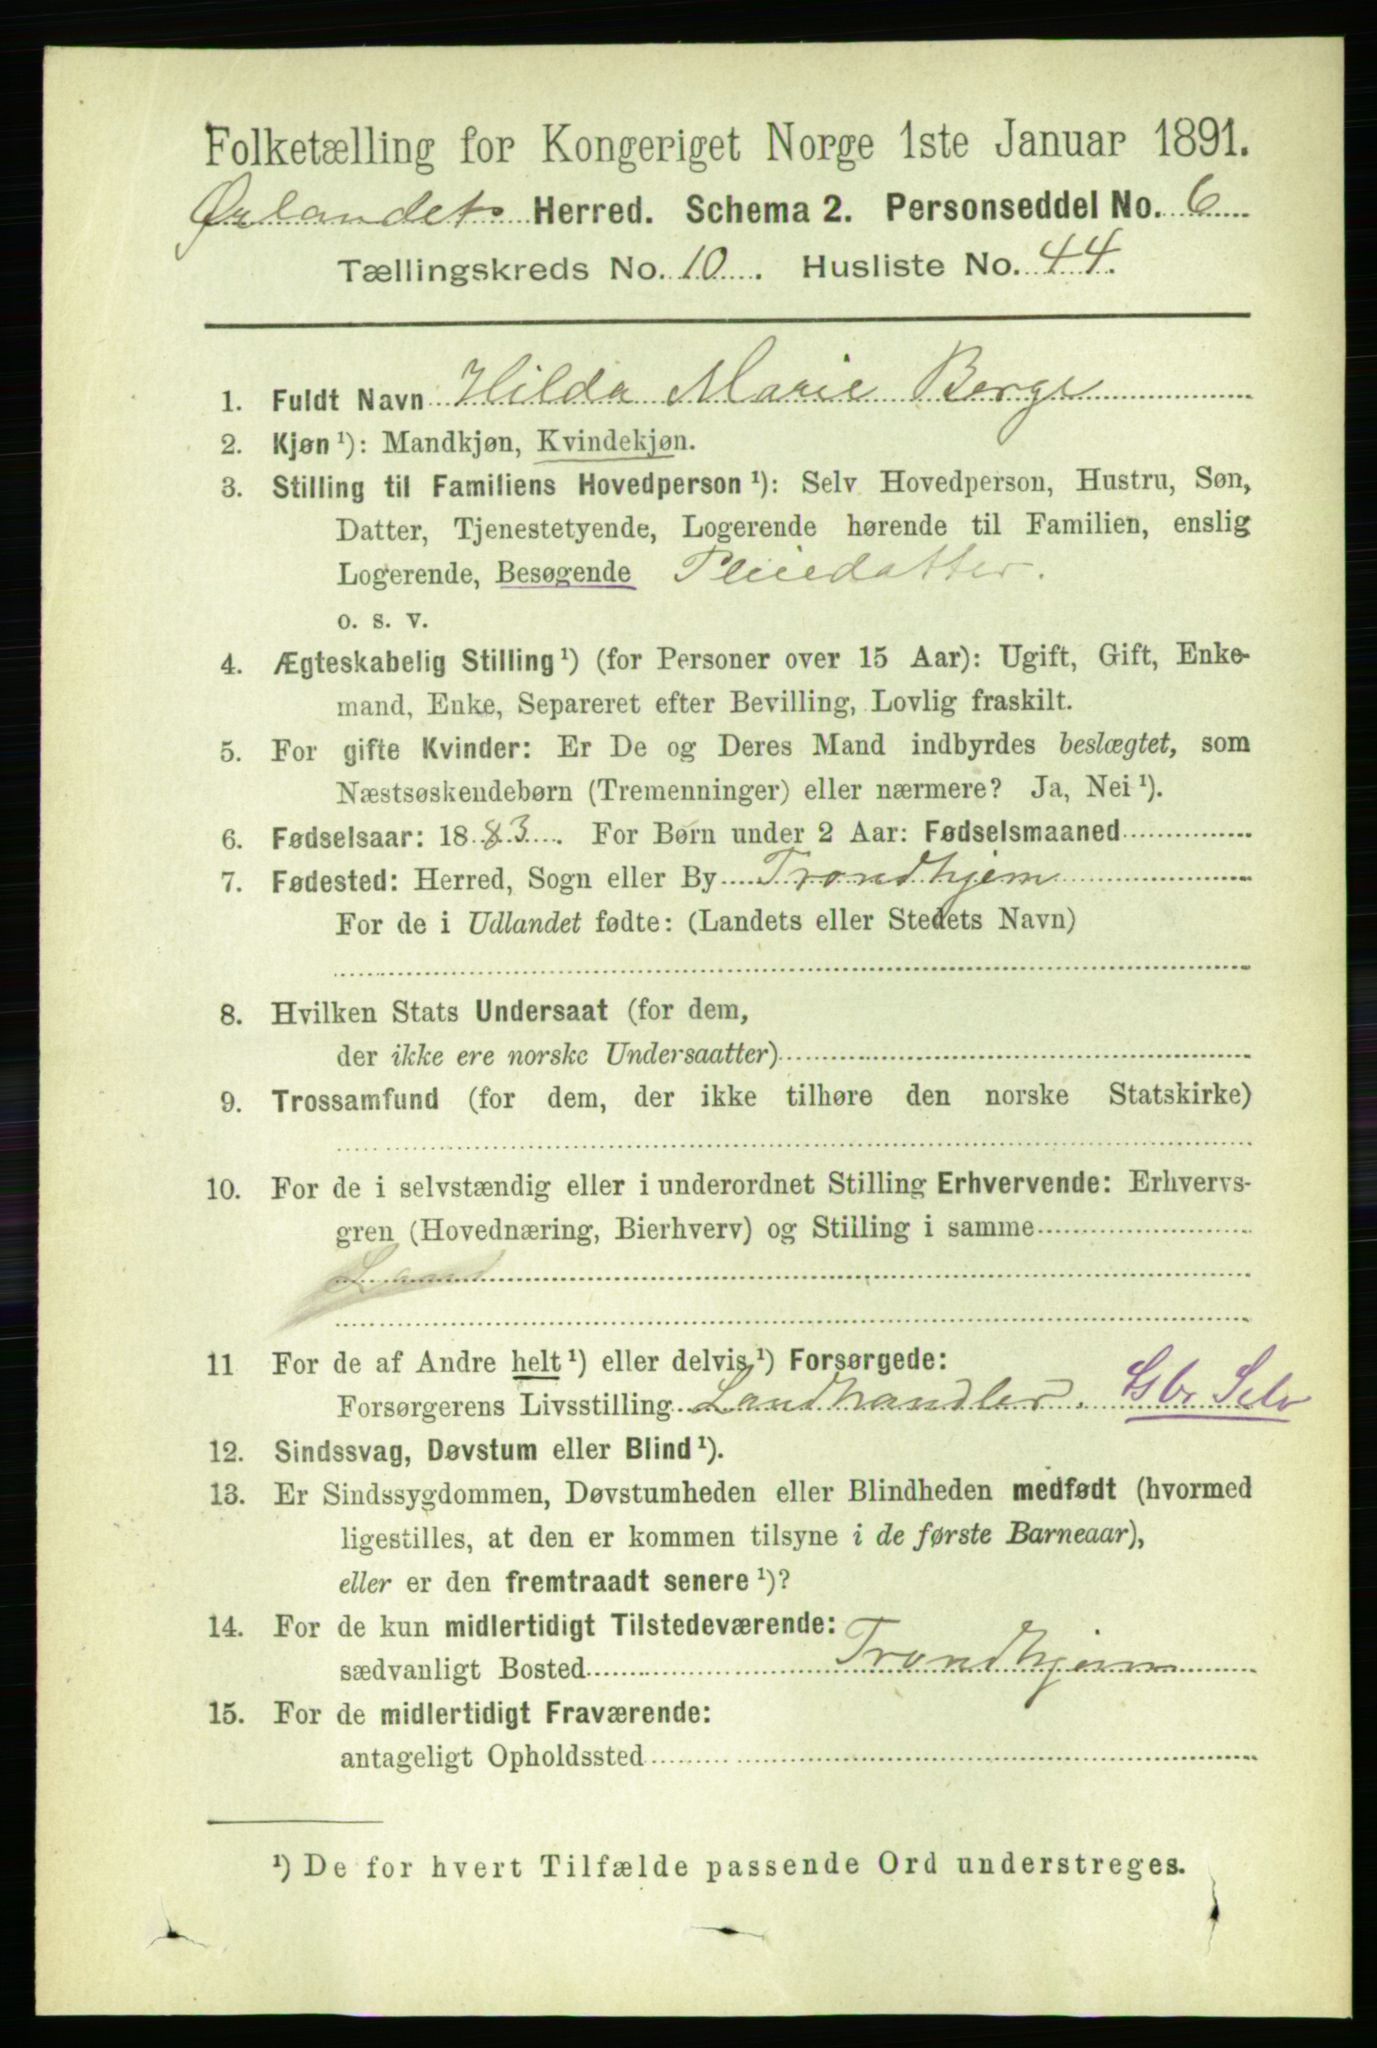 Folketælling for Kongeriget Norge 1ste Januar 1891.
Ørlandets Herred. Schema 2. Personseddel No. 6
Tællingskreds No. 10. Husliste No. 44.
1. Fuldt Navn Hilda Marie Berge
2. Kjøn ¹): Mandkjøn, Kvindekjøn.
3. Stilling til Familiens Hovedperson ¹): Selv Hovedperson, Hustru, Søn,
Datter, Tjenestetyende, Logerende hørende til Familien, enslig
Logerende, Besøgende Pleiedatter.
o. s. v.
4. Ægteskabelig Stilling ¹) (for Personer over 15 Aar): Ugift, Gift, Enke-
mand, Enke, Separeret efter Bevilling, Lovlig fraskilt.
5. For gifte Kvinder: Er De og Deres Mand indbyrdes beslægtet, som
Næstsøskendebørn (Tremenninger) eller nærmere? Ja, Nei ¹).
6. Fødselsaar: 1883. For Børn under 2 Aar: Fødselsmaaned
7. Fødested: Herred, Sogn eller By Trondhjem
For de i Udlandet fødte: (Landets eller Stedets Navn)
8. Hvilken Stats Undersaat (for dem,
der ikke ere norske Undersaatter)
9. Trossamfund (for dem, der ikke tilhøre den norske Statskirke)
10. For de i selvstændig eller i underordnet Stilling Erhvervende: Erhvervs-
gren (Hovednæring, Bierhverv) og Stilling i samme
11 For de af Andre helt ¹) eller delvis ¹) Forsørgede:
Forsørgerens Livsstilling Landhandler. Gbr Selv
12. Sindssvag, Døvstum eller Blind ¹).
13. Er Sindssygdommen, Døvstumheden eller Blindheden medfødt (hvormed
ligestilles, at den er kommen tilsyne i de første Barneaar),
eller er den fremtraadt senere ¹)?
14. For de kun midlertidigt Tilstedeværende:
sædvanligt Bosted Trondhjem
15. For de midlertidigt Fraværende:
antageligt Opholdssted
¹) De for hvert Tilfælde passende Ord understreges.